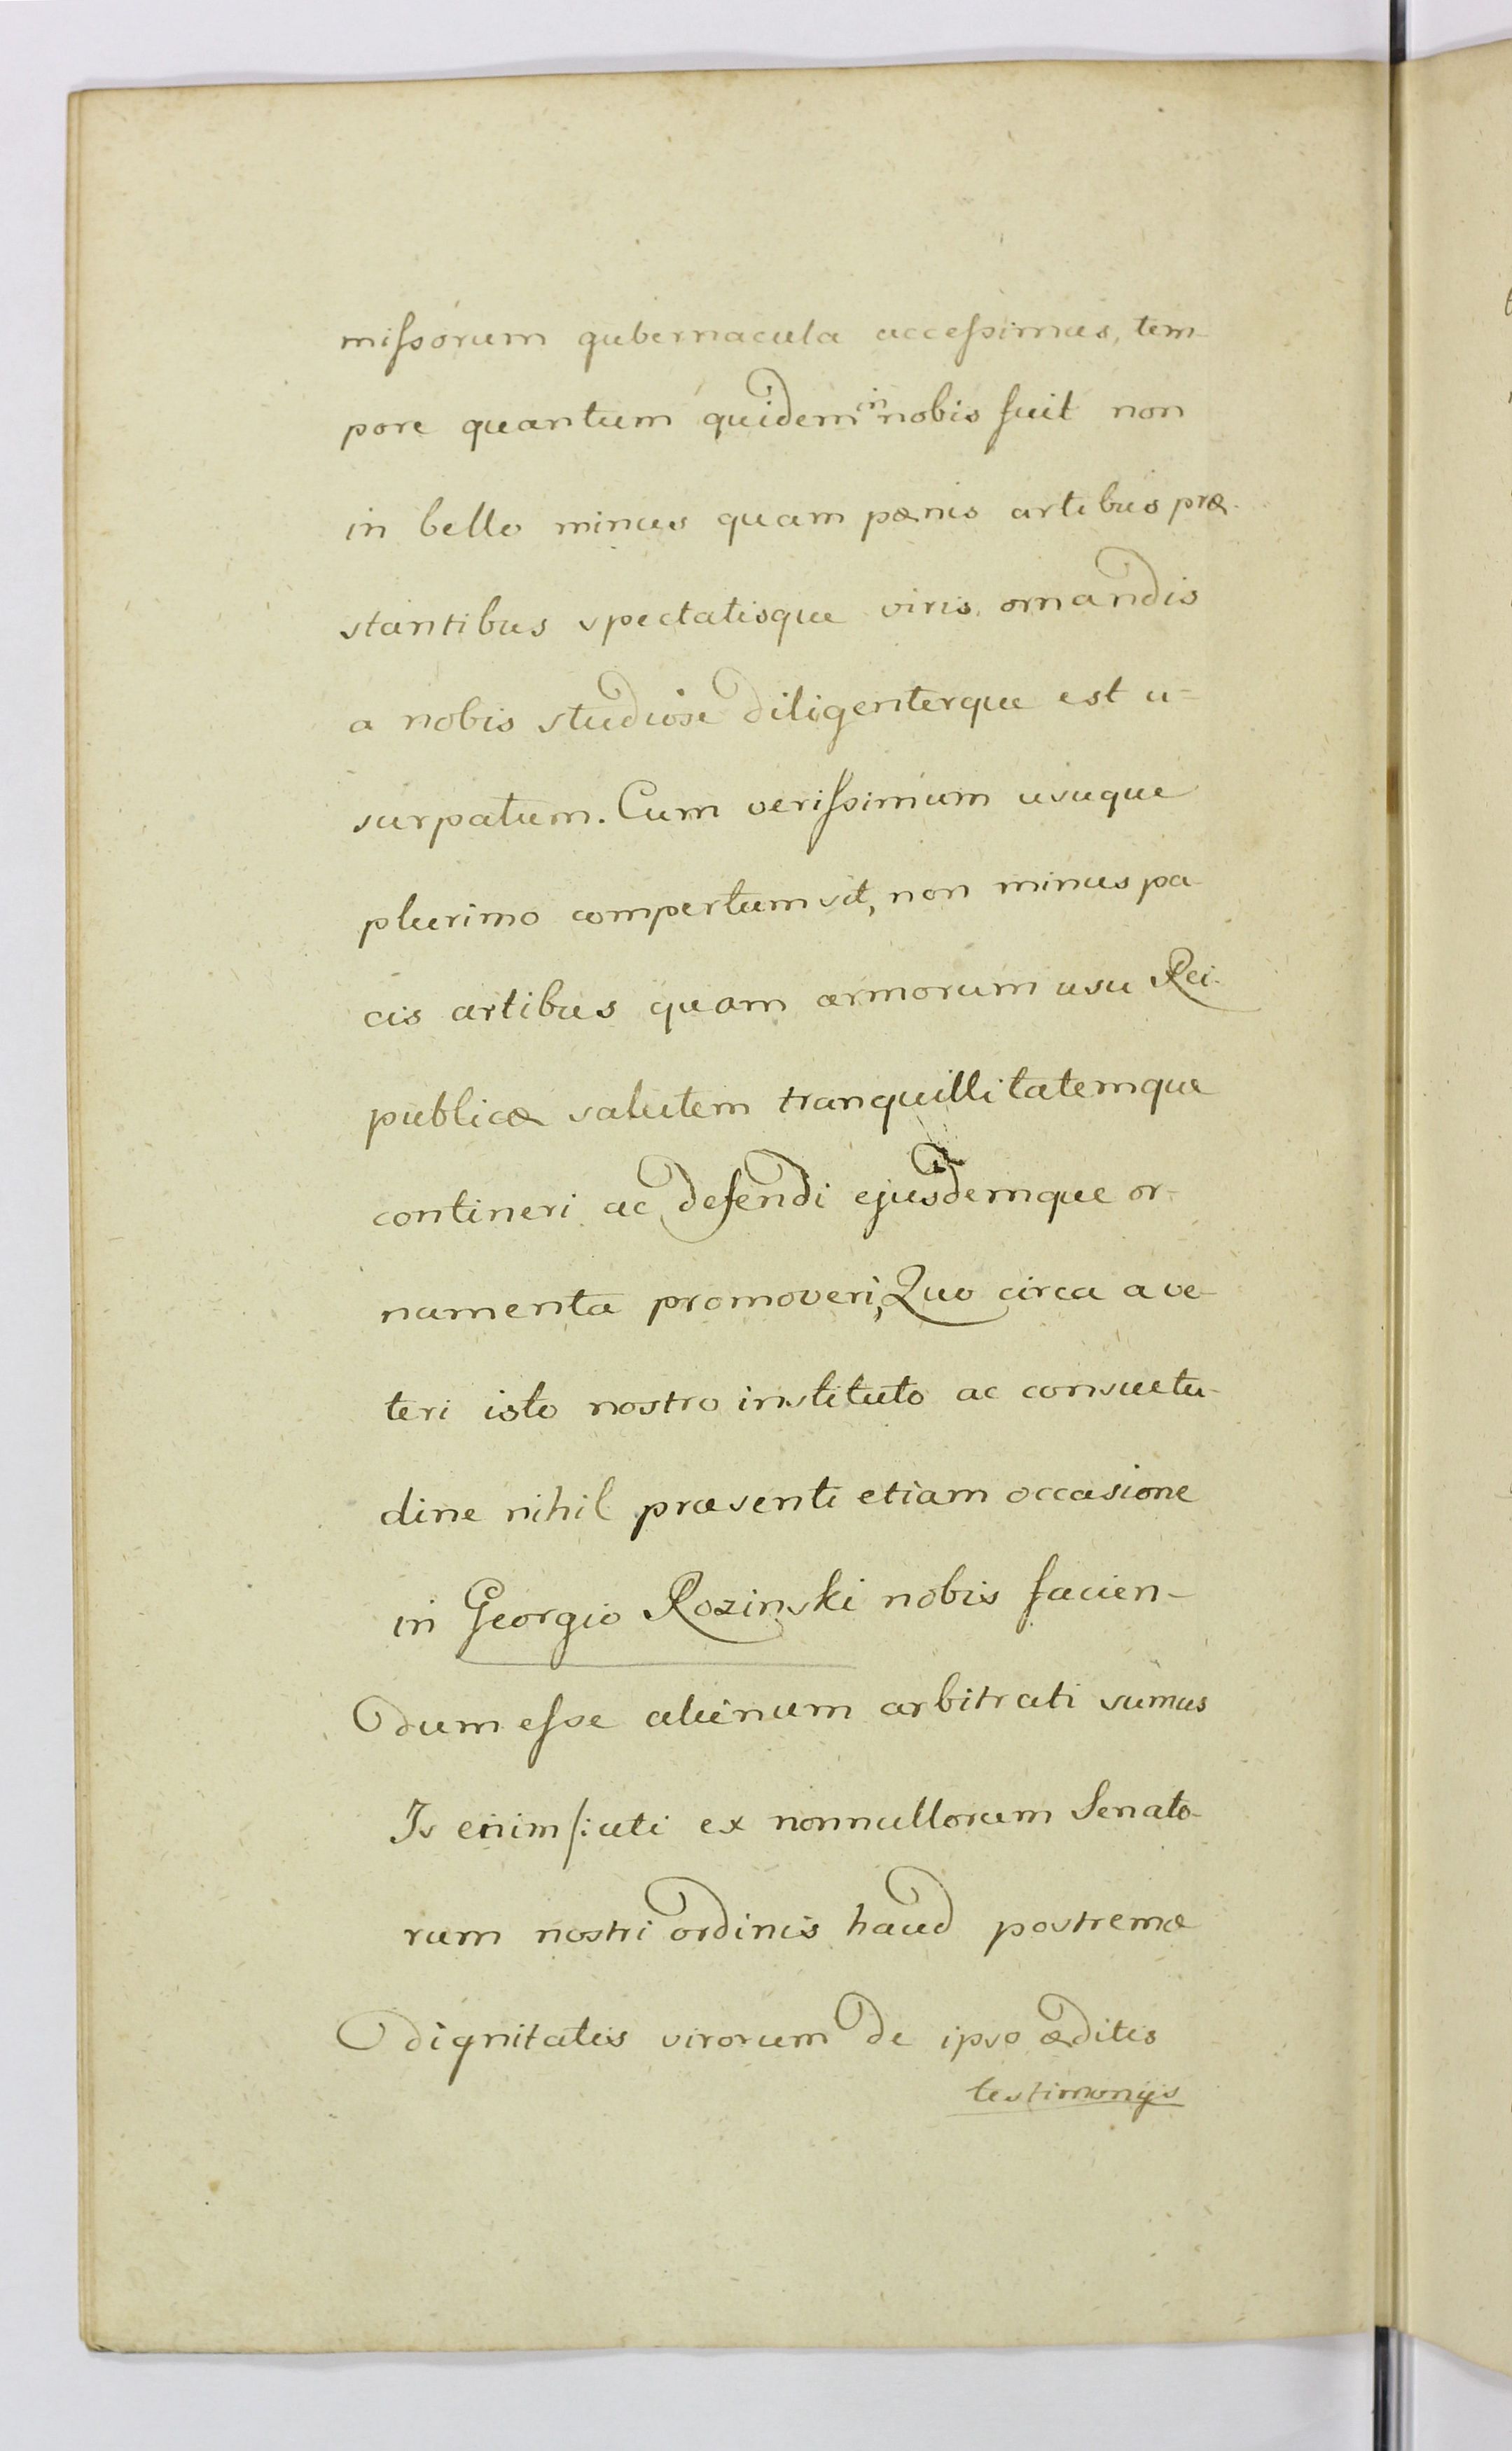 missorum gubernacula accessimus, tem-
pore quantum quidem in nobis fuit non
in bello minus quam pænis artibus præ-
stantibus spectatisque viris ornandis
a nobis studiose diligenterque est u=
surpatum. Cum verissimum usuque
plurimo compertum sit, non minus pa-
cis artibus quam armorum usu Rei-
publicæ salutem tranquillitatemque
contineri ac defendi ejusdemque or-
namenta promoveri, Quo circa a ve-
teri isto nostro instituto ac consuetu-
dine nihil præsenti etiam occasione
in Georgio Rozinski nobis facien-
dum esse alienum arbitrati sumus
Is enim /: uti ex nonnullorum Senato-
rum nostri ordinis haud postremæ
dignitatis virorum de ipso æditis
testimonijs